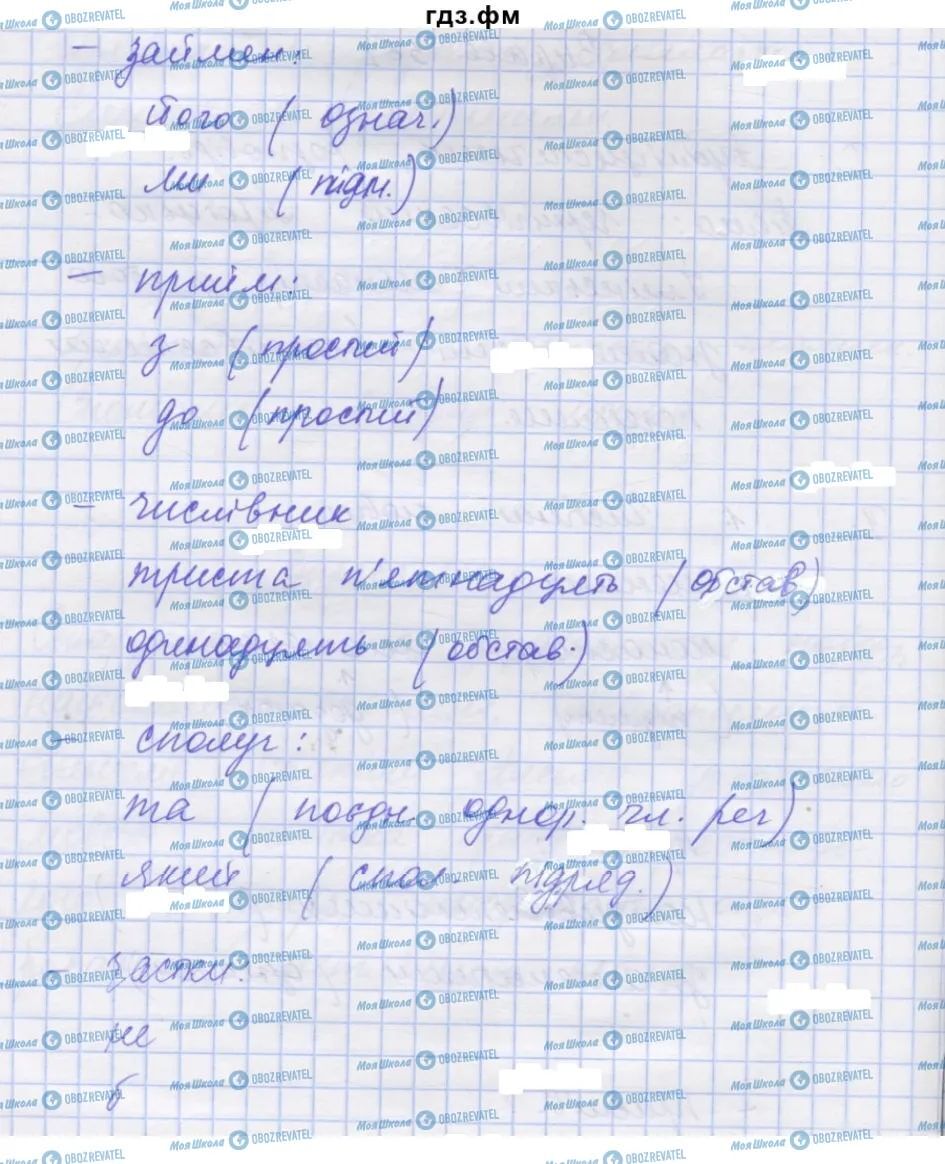 гдз.фм
— займен.:
його (означ.)
ми (підм.)
— прийм.:
з (простий)
до (простий)
— числівник
триста п'ятнадцять (обстав)
одинадцять (обстав.)
— сполуч:
та (поєдн. однор. чл. реч)
який (спол. підряд.)
частки:
не
б
МояШкола OBOZREVATEL